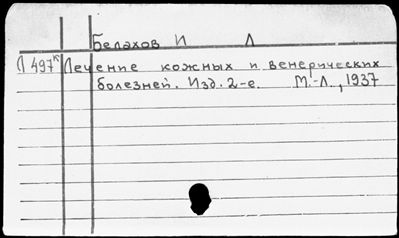 Белахов И Л
Л 497к Лечение кожных и венерических
болезней. Изд. 2-е. М.-Л., 1937